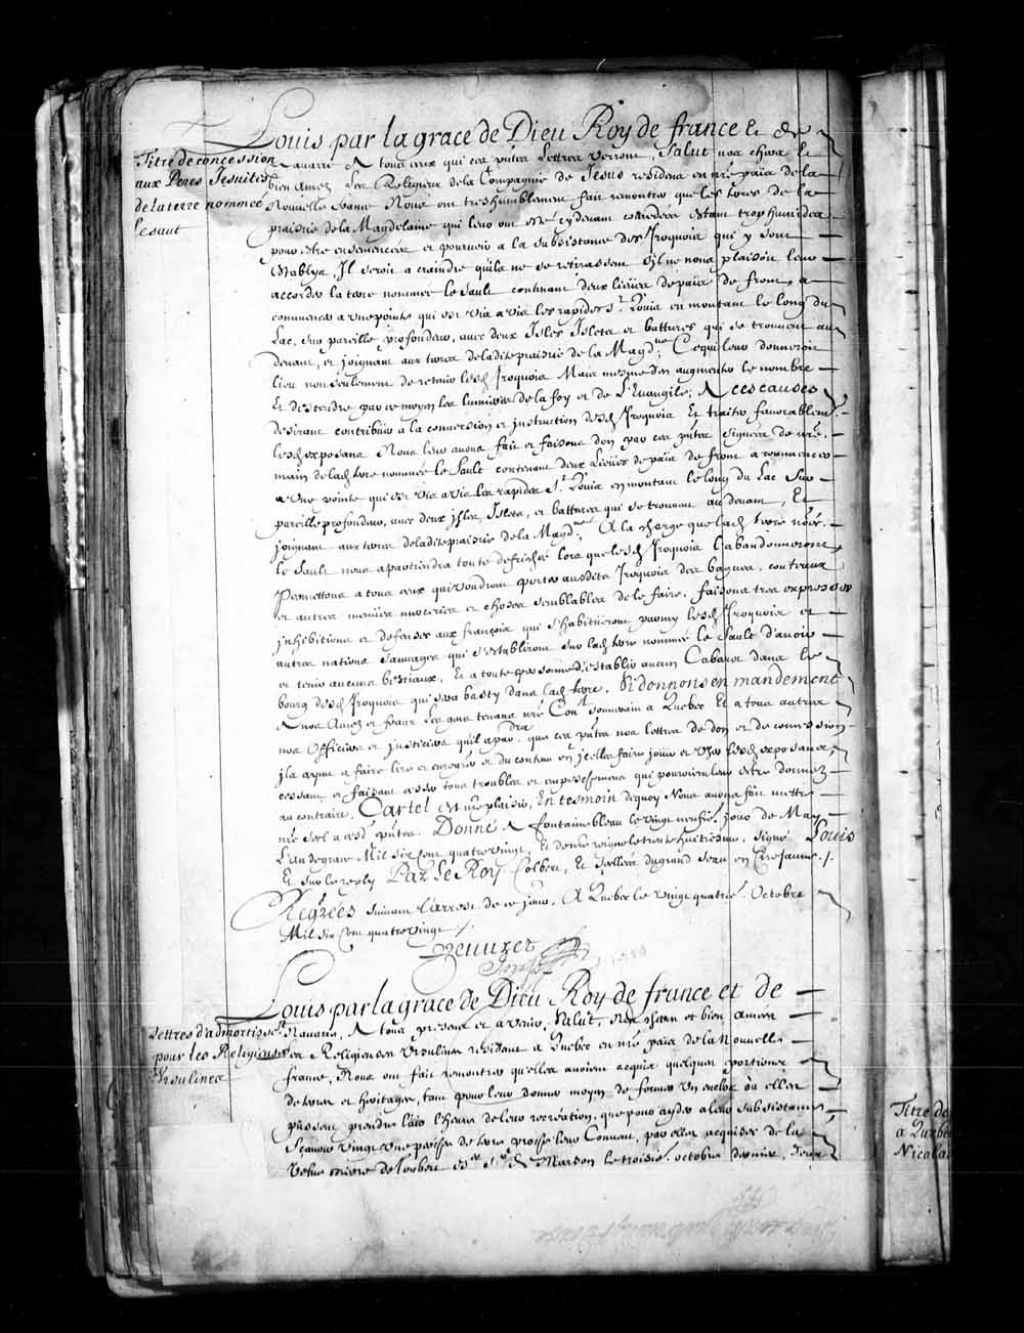 Louis par la grace de Dieu Roy de france & de
Titre de concession
aux Peres Jesuites
de la terre nommée
le saut
Navarre A tous ceux qui ces pntes Lettres verront, Salut nos chers &
bien Amez Les Religieux de la Compagnie de Jesus residens en nre païs de la
Nouvelle france Nous ont tres humblement fait remontrer que les terres de la
prairie de la Magdelaine qui leur ont esté cy devant concedées estant trop humides
pour estre ensemencées et pourvoir a la subsistance des Iroquois qui y sont
establys, Il seroit a craindre quils ne se retirassent s'il ne nous plaisoit leur
accorder la terre nommée le Sault contenant deux lieües de païs de front, a
commencer a une pointe qui est vis a vis les rapides St Louis en montant le long du
Lac, sur pareille profondeur, avec deux Isles Islets et battures qui se trouvent au
devant, et joignant aux terres de ladite prairie de la Magdne, Ce qui leur donneroit
lieu non seulement de retenir lesd Iroquois Mais mesme d'en augmenter le nombre
Et d'estendre par ce moyen les lumieres de la foy et de L'Evangile; A ces causes
desirant contribuer a la conversion et instruction desd Iroquois Et traiter favorablemt
lesd exposans Nous leur avons fait et faisons don par ces pntes signées de nre
main de lad terre nommée le Sault contenant deux Lieües de païs de front a commencer
a une pointe qui est vis a vis les rapides St Louis en montant le long du Lac sur
pareille profondeur, avec deux isles, Islets, et battures qui se trouvent au devant, Et
joignant aux terres de ladite prairie de la Magdne, A la charge que lad terre nomée
le Sault nous apartiendra toute defrichée lors que lesd Iroquois l'abandonneront,
Permettons a tous ceux qui voudront porter ausdits Iroquois des bagues, couteaux
et autres menües merceries et choses semblables de le faire. faisons tres expresses
inhibitions et defenses aux françois qui s'habitueront parmy lesd Iroquois et
autres nations sauvages qui s'establiront sur lad terre nommée le Sault d'avoir
et tenir aucuns bestiaux, Et a toute personne d'establir aucun Cabaret dans le
bourg desd Iroquois qui sera basty dans lad terre. Si donnons en mandement
A nos Amez et feaux Les gens tenans nre Conl souverain a Quebec Et a tous autres
nos officiers et justiciers qu'il apar.dra que ces pntes nos lettres de don et de concession
ils ayent a faire lire et enregrer et du contenu en jcelles faire jouir et user lesd exposans
cessant et faisant cesser tous troubles et empeschemens qui pourroient leur estre donnez
au contraire. Car tel est nre plaisir. En tesmoin de quoy Nous avons fait mettre
nre scel a cesd pntes. Donné A fontainebleau le vingt neufie jour de May
L'an de grace Mil six cent quatre vingt, Et de nre regne le trente huitiesme, signé Louis
Et sur le reply Par le Roy Colbert, Et scellées du grand sceau en Cire jaune ./.
Regrées suivant l'arrest de ce jour, A Quebec le vingt quatrie Octobre
Mil six cent quatre vingt ./.
Peuvret
Louis par la grace de Dieu Roy de france et de
Lettres d'admortissemt
pour les Religieuses
Vrsulines
Navarre, A tous presens et a venir, Salut, Nos cheres et bien amées
Les Religieuses Ursulines residant a Quebec en nre païs de la Nouvelle
france, Nous ont fait remontrer qu'elles avoient acquis quelques portions
de terres et heritages, tant pour leur donner moyen de former un enclos où elles
pussent prendre l'air l'heure de leur recreation, que pour ayder a leur subsistance,
Sçavoir vingt une perches de terre proche leur Convent, par elles acquises de la
le troisie octobre dernier,
Titre de
a Quebe
Nicolas